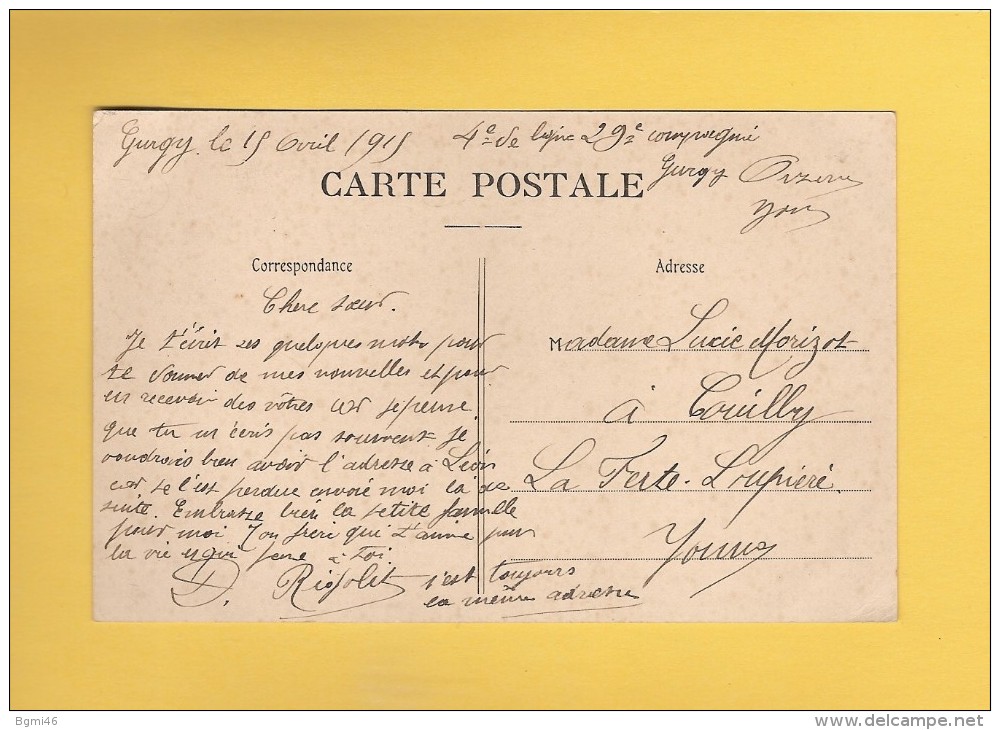 Gurgy le 15 Avril 1915 4e de ligne 29e compagnie
Gurgy
CARTE POSTALE
Correspondance
Adresse
Chere sœur.
Je t'écris ses quelques mots pour
te donner de mes nouvelles et pour
en recevoir des vôtres car je pense
que tu m'écris pas souvent je
voudrais bien avoir l'adresse à Léon
car je l'est perdue envoié moi la de
suite. Embrasse bien la petite famille
pour moi Ton frère qui t'aime pour
la vie et qui pense à toi
D. Rigolet s'est toujours
la même adresse
Madame Lucie Morizot
à Couilly
La Ferte-Loupiere
Yonne
Bgmi46
delcampe.net